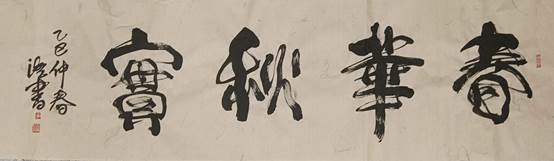 春華秋實
乙巳仲春
書